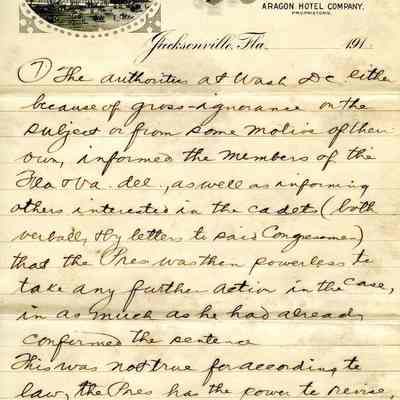 ARAGON HOTEL COMPANY,
PROPRIETORS.
Jacksonville, Fla. 191
① The authorities at Wash DC either
because of gross-ignorance on the
subject or from some motive of their
own, informed the members of the
Fla & Va. del., as well as informing
others interested in the cadets (both
verbally & by letters to said Congressmen)
that the Pres was then powerless to
take any further action in the case,
in as much as he had already
confirmed the sentence
This was not true for according to
law, the Pres has the power to revise,